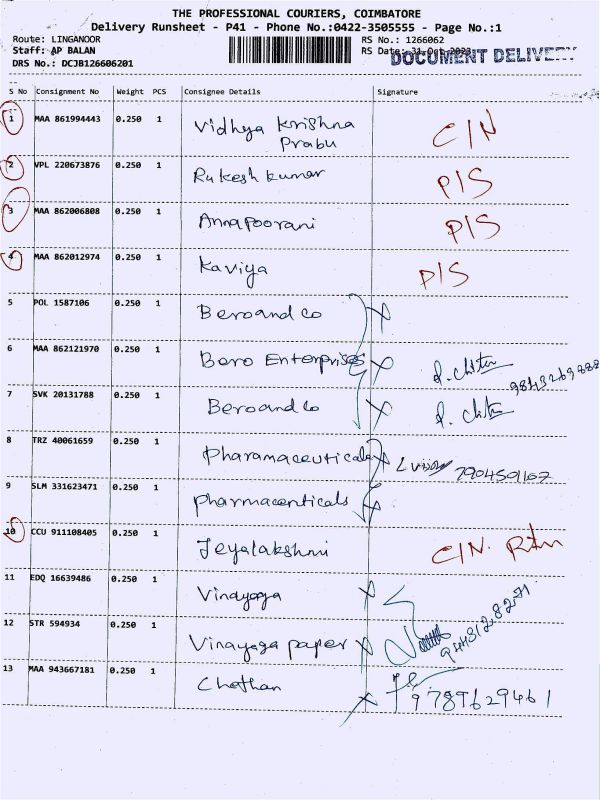 THE PROFESSIONAL COURIERS, COIMBATORE
Delivery Runsheet - P41 - Phone No.:0422-3505555 - Page No.:1
Route: LINGANOOR RS No.: 1266062
Staff: AP BALAN RS Date: 31 Oct 2023
DOCUMENT DELIVERY
DRS No.: DCJB126606201
S No Consignment No Weight PCS Consignee Details Signature
1 MAA 861994443 0.250 1 Vidhya Krishna Prabu C/N
2 VPL 220673876 0.250 1 Rukesh kumar P/S
3 MAA 862006808 0.250 1 Annapoorani P/S
4 MAA 862012974 0.250 1 Kaviya P/S
5 POL 1587106 0.250 1 Beroandco
6 MAA 862121970 0.250 1 Bero Enterprises 9843269888
7 SVK 20131788 0.250 1 Beroandco
8 TRZ 40061659 0.250 1 Pharamaceuticals 7904501107
9 SLM 331623471 0.250 1 Pharmacenticals
10 CCU 911108405 0.250 1 Jeyalakshmi C/N. Rtn
11 EDQ 16639486 0.250 1 Vinayoga
12 STR 594934 0.250 1 Vinayoga paper 9443128271
13 MAA 943667181 0.250 1 Chethan 9789629461